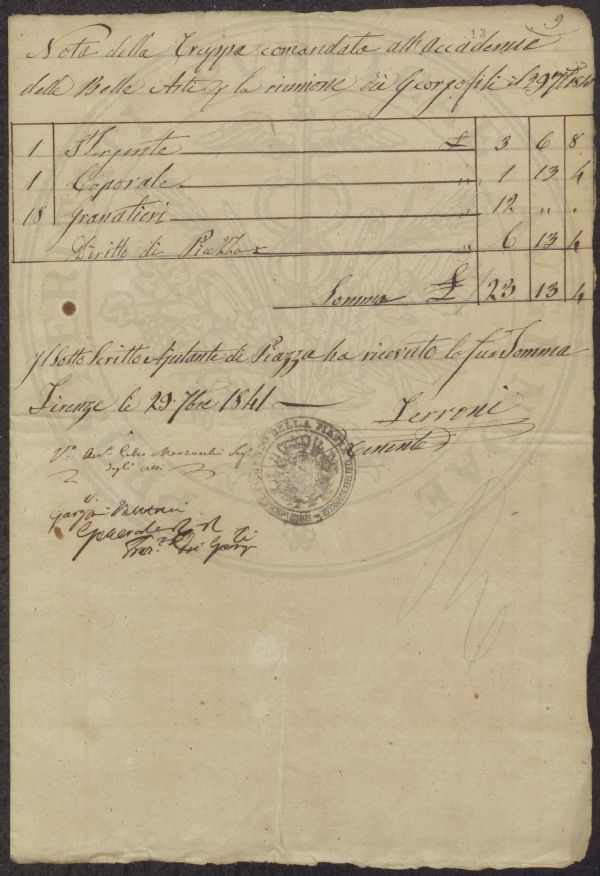 9
13
Nota della Truppa comandata all'accademia
delle Belle Arti p la riunione dei Georgofili il 29 7bre 1841
1 Sergente £ 3 6 8
1 Caporale " 1 13 4
18 Granatieri " 12 " "
Diritto di Piazza " 6 13 4
Somma £ 23 13 4
Il Sotto Scritto Ajutante di Piazza ha ricevuto la sud. Somma
Firenze li 29. 7bre 1841
Ferroni
Tenente
V.
degli atti
DELLA PIAZZA